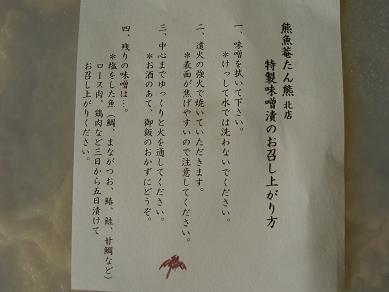 熊魚菴たん熊 北店
特製味噌漬のお召し上がり方
一、味噌を拭いて下さい。
＊けっして水では洗わないでください。
二、遠火の強火で焼いていただきます。
＊表面が焦げやすいので注意してください。
三、中心までゆっくりと火を通してください。
＊お酒のあて、御飯のおかずにどうぞ。
四、残りの味噌は…。
＊塩をした魚（鯛、まながつお、鰆、鮭、甘鯛など）
ロース肉、鶏肉など三日から五日漬けて
お召し上がりください。